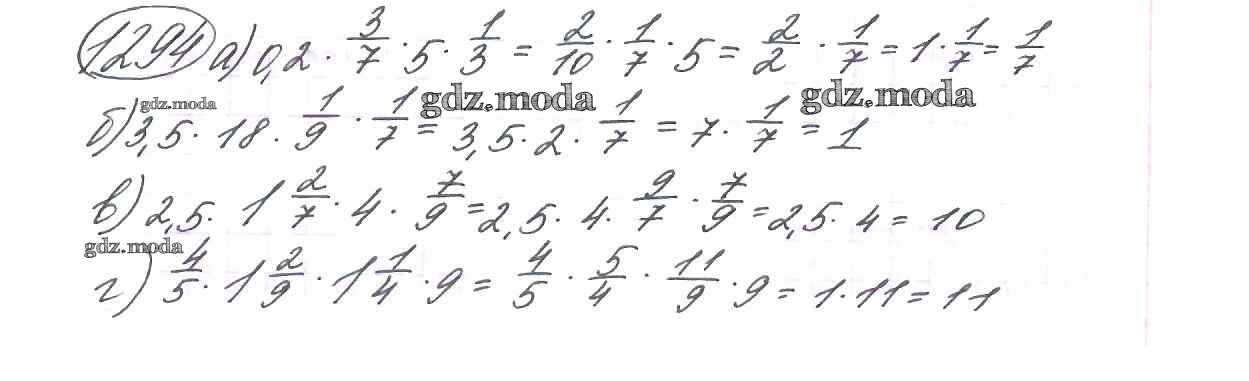 1294 а) 0,2 · 3/7 · 5 · 1/3 = 2/10 · 1/7 · 5 = 2/2 · 1/7 = 1 · 1/7 = 1/7
gdz.moda gdz.moda gdz.moda
б) 3,5 · 18 · 1/9 · 1/7 = 3,5 · 2 · 1/7 = 7 · 1/7 = 1
в) 2,5 · 1 2/7 · 4 · 7/9 = 2,5 · 4 · 9/7 · 7/9 = 2,5 · 4 = 10
gdz.moda
г) 4/5 · 1 2/9 · 1 1/4 · 9 = 4/5 · 5/4 · 11/9 · 9 = 1 · 11 = 11